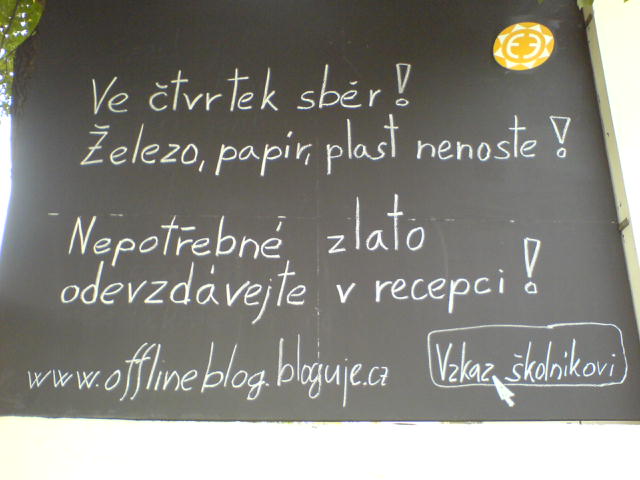 Ve čtvrtek sběr!
Železo, papír, plast nenoste!
Nepotřebné zlato
odevzdávejte v recepci!
www.offlineblog.bloguje.cz
Vzkaz školníkovi